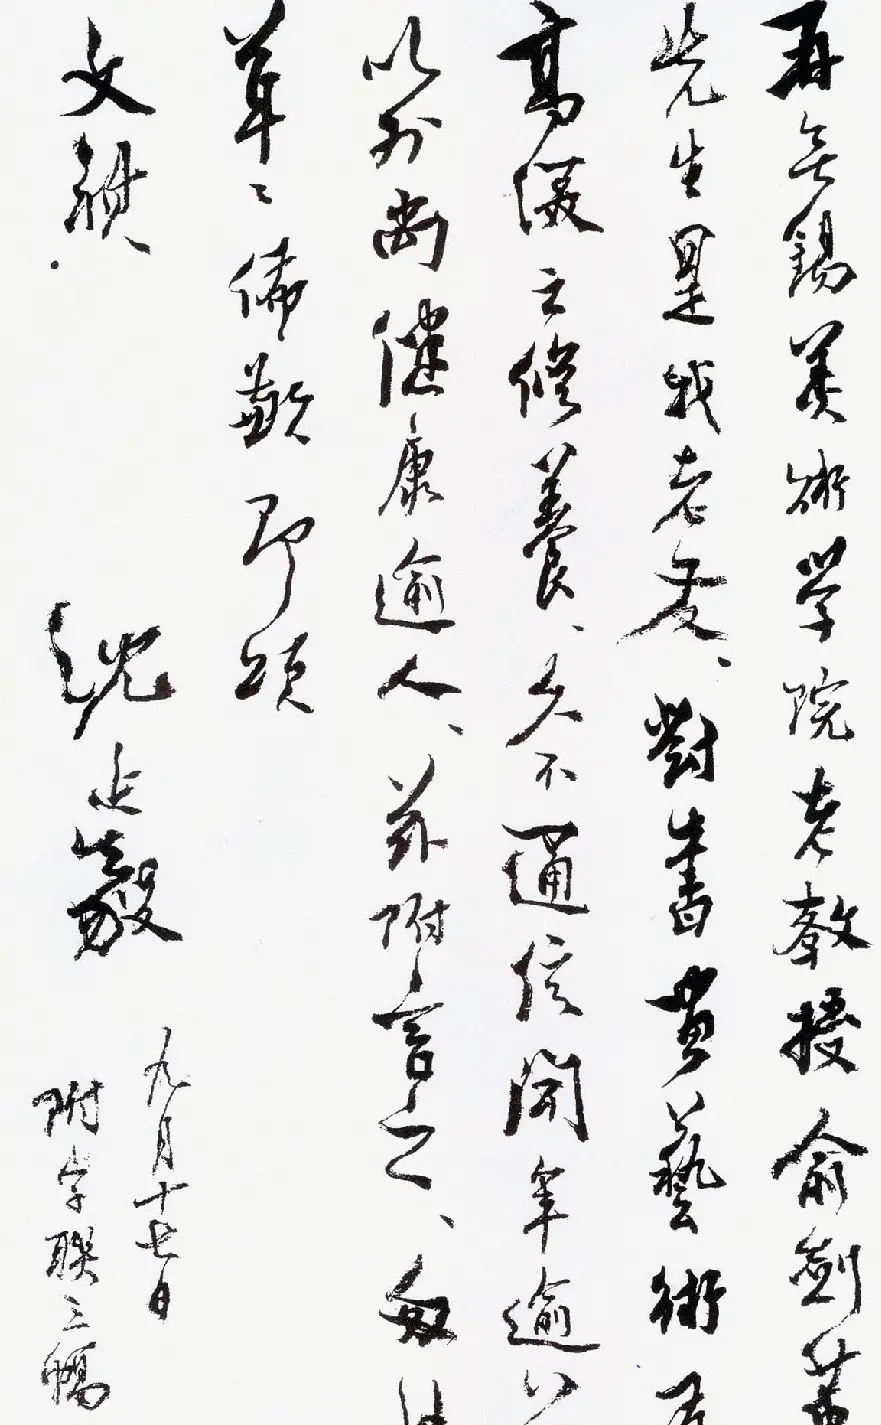 再无錫美術学院老教授俞劍華
先生是我老友、對書畫藝術
高深之修養、久不通信聞年逾八
以外尚健康逾人、茲附言之、匆
草々佈歉即頌
文祺
沈延毅
九月十七日
附字聯三幅